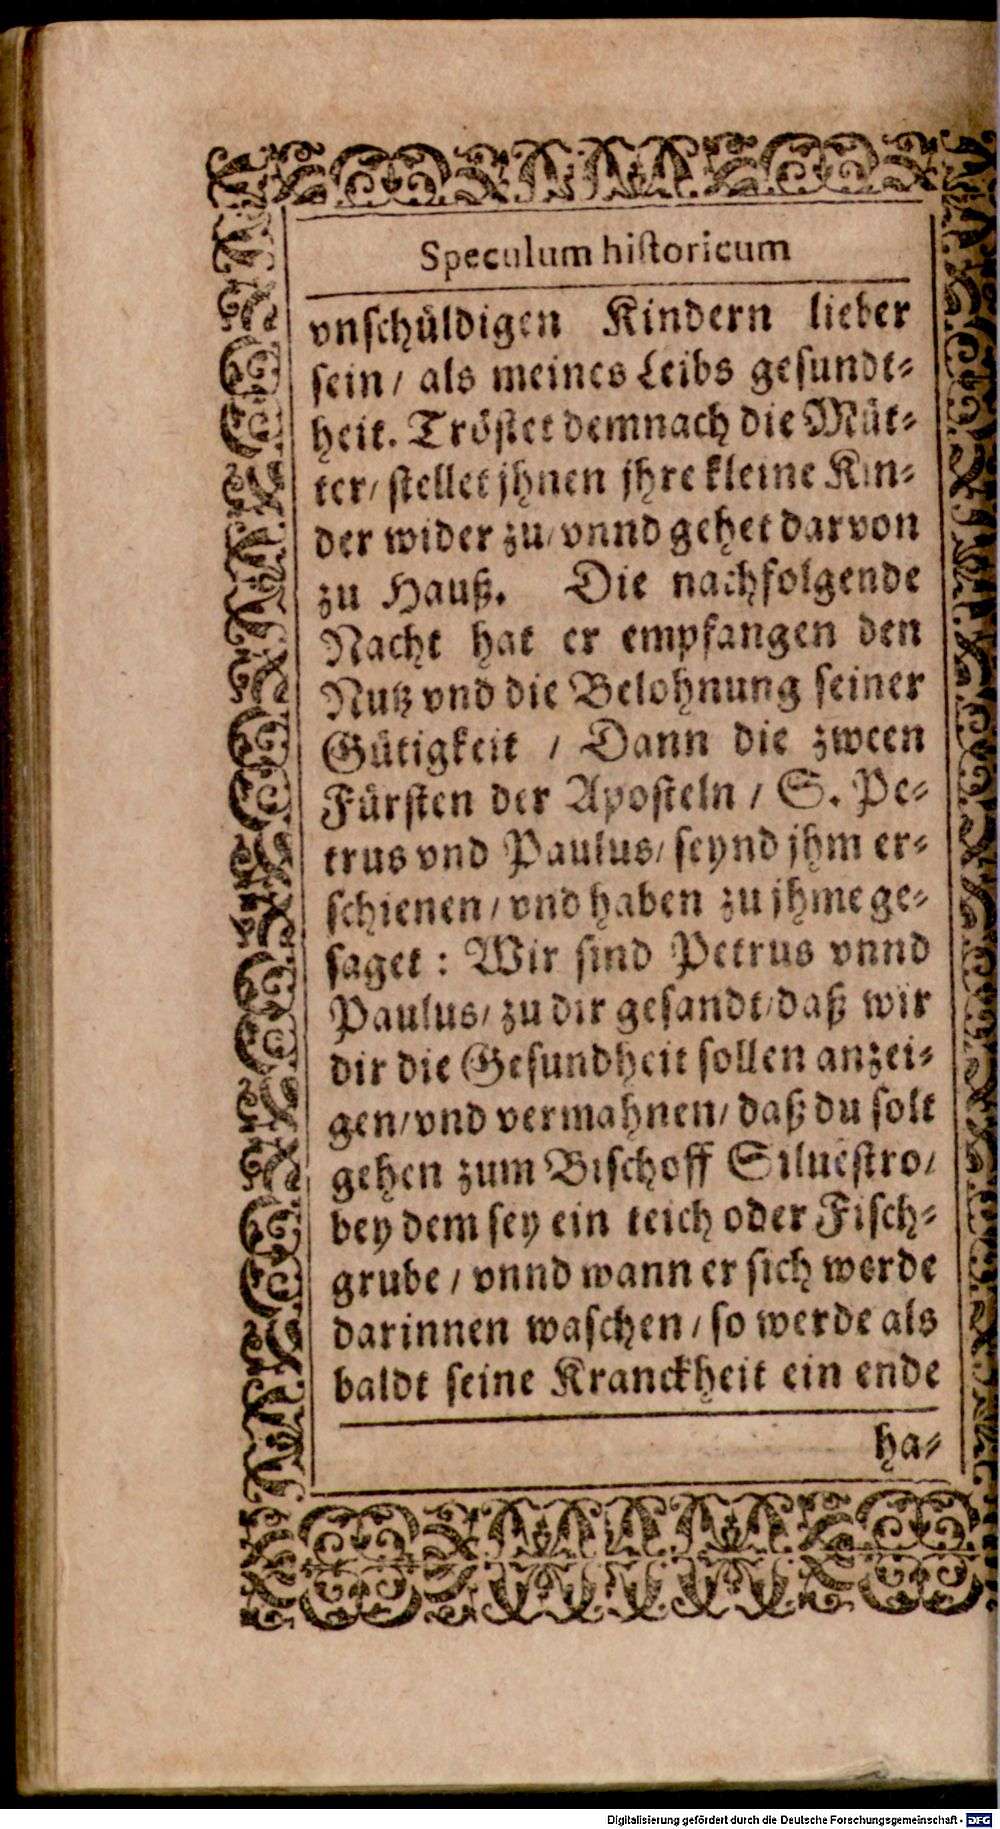 Speculum historicum
vnſchüldigen Kindern lieber
ſein / als meines Leibs geſundt-
heit. Tröſtet demnach die Müt-
ter / ſtellet jhnen jhre kleine Kin-
der wider zu / vnnd gehet darvon
zu Hauß. Die nachfolgende
Nacht hat er empfangen den
Nutz vnd die Belohnung ſeiner
Gütigkeit / Dann die zween
Fürſten der Apoſteln / S. Pe-
trus vnd Paulus / ſeynd jhm er-
ſchienen / vnd haben zu jhme ge-
ſaget : Wir ſind Petrus vnnd
Paulus / zu dir geſandt / daß wir
dir die Geſundheit ſollen anzei-
gen / vnd vermahnen / daß du ſolt
gehen zum Biſchoff Silueſtro /
bey dem ſey ein teich oder Fiſch-
grube / vnnd wann er ſich werde
darinnen waſchen / ſo werde als
baldt ſeine Kranckheit ein ende
ha-
Digitalisierung gefördert durch die Deutsche Forschungsgemeinschaft - DFG